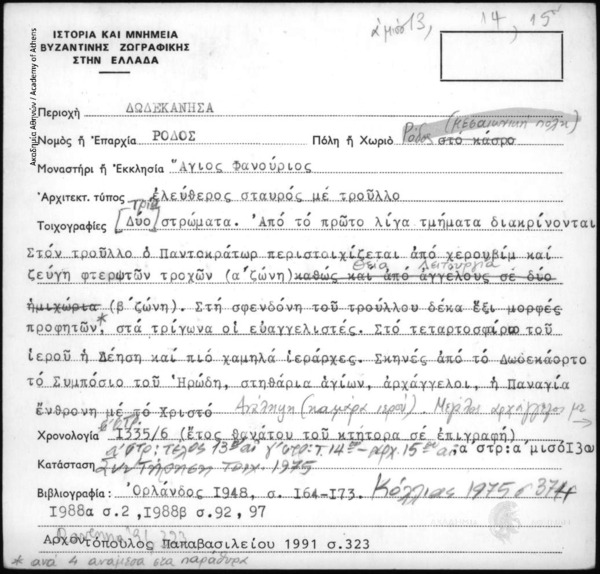 ἀ μισό 13, 14, 15
ΙΣΤΟΡΙΑ ΚΑΙ ΜΝΗΜΕΙΑ
ΒΥΖΑΝΤΙΝΗΣ ΖΩΓΡΑΦΙΚΗΣ
ΣΤΗΝ ΕΛΛΑΔΑ
Ακαδημία Αθηνών / Academy of Athens
Περιοχή ΔΩΔΕΚΑΝΗΣΑ
(μεσαιωνική πόλη)
Νομὸς ἤ Ἐπαρχία ΡΟΔΟΣ Πόλη ἤ Χωριὸ Ρόδος στό κάστρο
Μοναστήρι ἤ Ἐκκλησία Ἅγιος Φανούριος
Ἀρχιτεκτ. τύπος ἐλεύθερος σταυρός μέ τροῦλλο
Τρία
Τοιχογραφίες [Δύο] στρώματα. Ἀπό τό πρῶτο λίγα τμήματα διακρίνονται
Στόν τροῦλλο ὁ Παντοκράτωρ περιστοιχίζεται ἀπό χερουβίμ καί
Θεία Λειτουργία
ζεύγη φτερωτῶν τροχῶν (α΄ζώνη) καθώς καί ἀπό ἀγγέλους σέ δύο
ἡμιχώρια (β΄ζώνη). Στή σφενδόνη τοῦ τρούλλου δέκα ἕξι μορφές
προφητῶν,* στά τρίγωνα οἱ εὐαγγελιστές. Στό τεταρτοσφαίριο τοῦ
ἱεροῦ ἡ Δέηση καί πιό χαμηλά ἱεράρχες. Σκηνές ἀπό τό Δωδεκάορτο
τό Συμπόσιο τοῦ Ἡρώδη, στηθάρια ἁγίων, ἀρχάγγελοι, ἡ Παναγία
ἔνθρονη μέ τό Χριστό Ἀνάληψη (καμάρα ἱεροῦ). Μεγάλοι ἀρχάγγελοι με →
β΄στρ:
Χρονολογία 1335/6 (ἔτος θανάτου τοῦ κτήτορα σέ ἐπιγραφή)
α΄στρ: τέλος 13ου αἰ γ΄στρ: τ. 14ου - ἀρχ. 15ου αἰ. τα στρ:α΄μισό 13ου
Κατάσταση Συντήρηση τοιχ. 1975
Βιβλιογραφία: Ὀρλάνδος 1948, σ. 164-173. Κόλλιας 1975 σ 374
1988α σ.2, 1988β σ.92, 97
Ἀρχοντόπουλος Παπαβασιλείου 1991 σ.323
* ανά 4 ανάμεσα στα παράθυρα